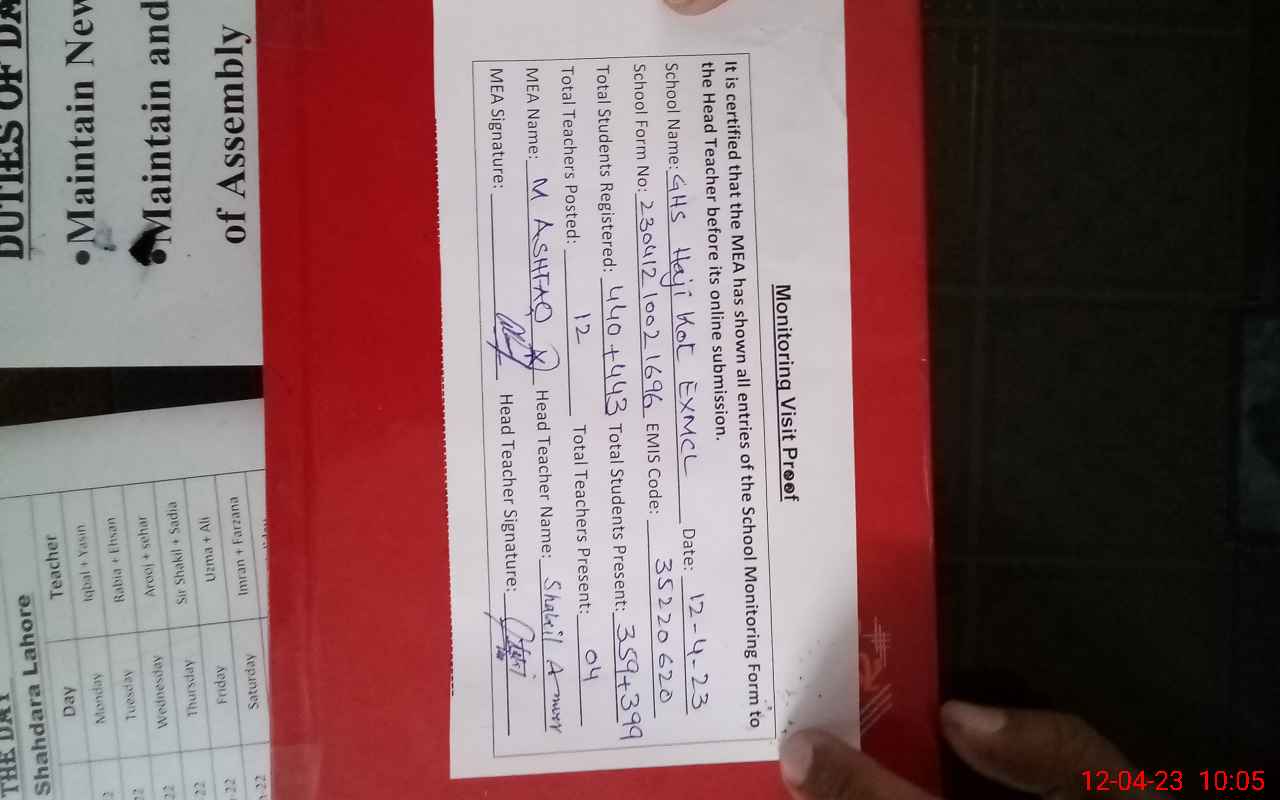 Monitoring Visit Proof
It is certified that the MEA has shown all entries of the School Monitoring Form to
the Head Teacher before its online submission.
School Name: GHS Haji Kot EXMCL Date: 12-4-23
School Form No: 230412 1002 1696 EMIS Code: 35220620
Total Students Registered: 440+443 Total Students Present: 359+399
Total Teachers Posted: 12 Total Teachers Present: 04
MEA Name: M ASHFAQ Head Teacher Name: Shakil Anwer
MEA Signature: Head Teacher Signature:
DUTIES OF DA
•Maintain New
•Maintain and
of Assembly
THE DAY
Shahdara Lahore
Teacher Day
Iqbal + Yasin Monday
Rabia + Ehsan Tuesday
Arooj + Sehar Wednesday
Sir Shakil + Sadia Thursday
Uzma + Ali Friday
Imran + Farzana Saturday
12-04-23 10:05